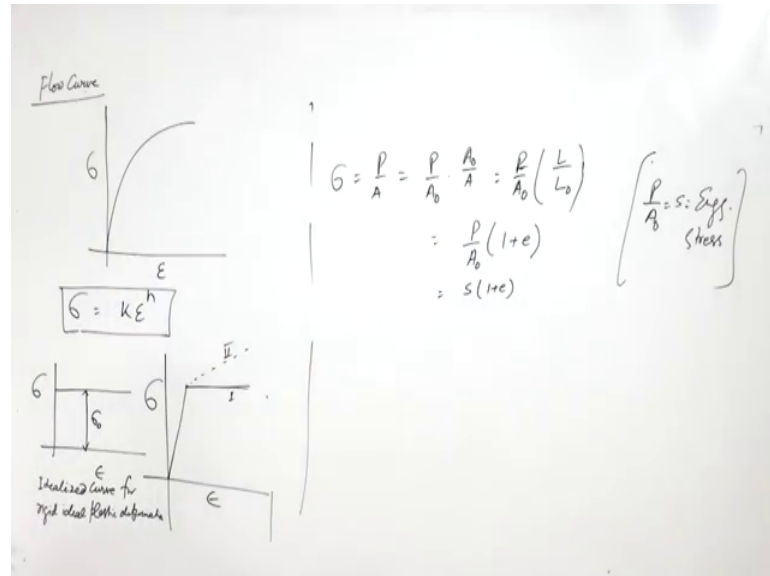 Flow Curve
σ
ε
σ = Kε^n
σ
σ₀
ε
Idealized Curve for
rigid ideal plastic
σ
II
I
ε
σ = P/A = P/A₀ · A₀/A = P/A₀ (L/L₀)
= P/A₀ (1+e)
= s(1+e)
[P/A₀ = s = Engg.
Stress]